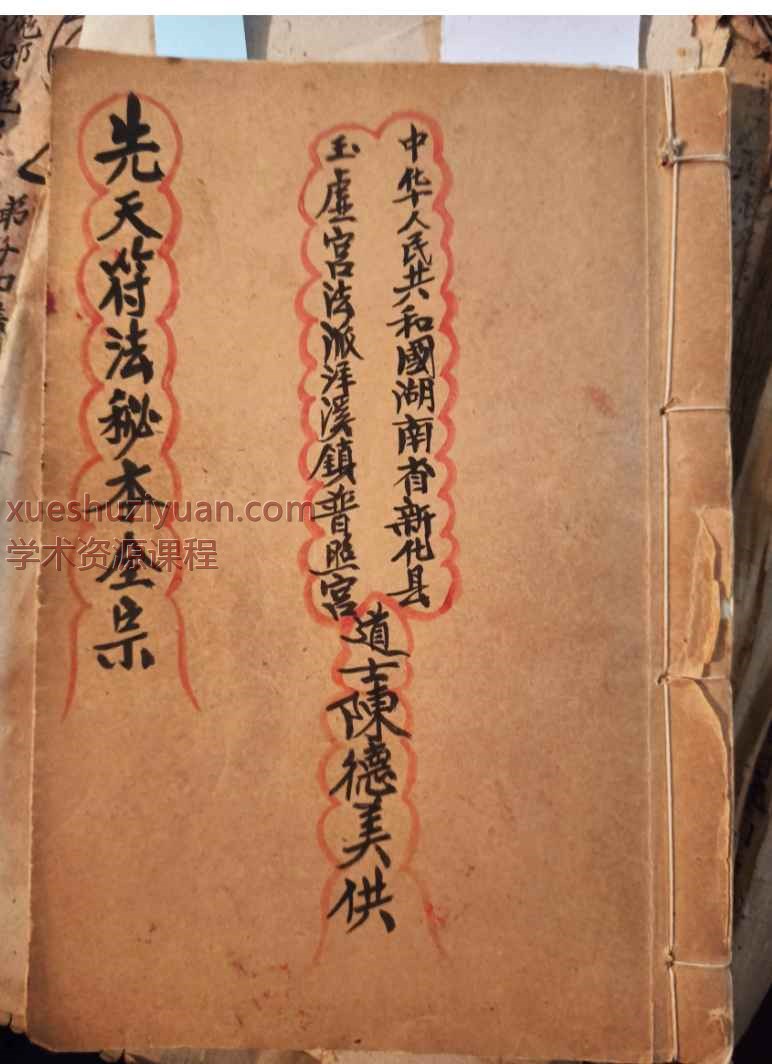 中华人民共和國湖南省新化县
玉虚宫法派洋溪鎮普照宫
道士陳德美供
先天符法秘本全宗
xueshuziyuan.com
学术资源课程
弟子